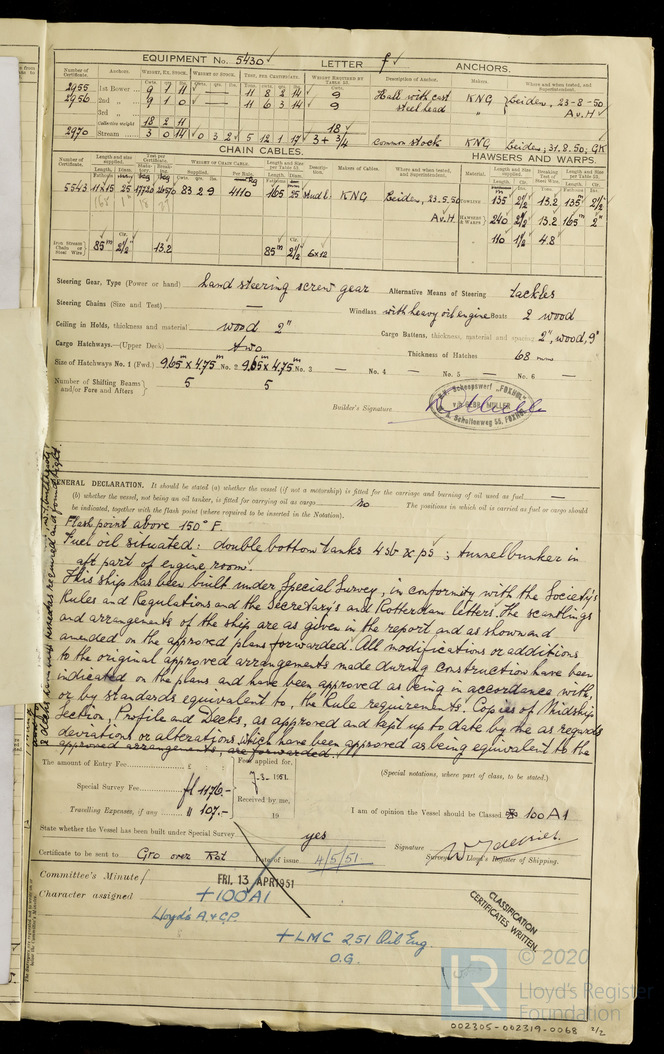 EQUIPMENT No. 5430 LETTER f ANCHORS.
Number of Certificate. Anchors. WEIGHT, EX. STOCK. WEIGHT OF STOCK. TEST, PER CERTIFICATE. WEIGHT REQUIRED BY TABLE 53. Description of Anchor. Makers Where and when tested, and Superintendent.
2955 1st Bower 9 1 11 — 11 8 2 14 9 Hall with cast KNG Leiden, 23-8-50
2956 2nd " 9 1 0 — 11 6 3 14 9 steel head " AvH
3rd "
Collective weight 18 2 11 18
2970 Stream 3 0 14 0 3 2 5 12 1 17 3 + 3/4 common stock KNG Leiden, 31.8.50, GK
CHAIN CABLES. HAWSERS AND WARPS.
Number of Certificate. Length and size supplied. Test per Certificate. WEIGHT OF CHAIN CABLE. Length and Size per Table 53. Description. Makers of Cables. Where and when tested, and Superintendent. Material. Length and Size supplied. Breaking Test of Steel Wire. Length and Size per Table 53.
5543 11x15 25 17720 26570 83 2 9 4110 165 25 studl: KNG Leiden, 23.5.50 TOWLINE 135 2½ 13.2 135 2½
AvH HAWSERS & WARPS 240 2½ 13.2 165 2"
110 1½ 4.8
Iron Stream Chain or Steel Wire 85m 2½" 13.2 85m 2½ 6x12
Steering Gear, Type (Power or hand) hand steering screw gear Alternative Means of Steering tackles
Steering Chains (Size and Test) — Windlass with heavy oil engine Boats 2 wood
Ceiling in Holds, thickness and material wood 2" Cargo Battens, thickness, material and spacing 2", wood, 9"
Cargo Hatchways.—(Upper Deck) two Thickness of Hatches 68 mm
Size of Hatchways No. 1 (Fwd.) 9.65m x 4.75m No. 2 9.65m x 4.75m No. 3 — No. 4 — No. 5 — No. 6 —
Number of Shifting Beams and/or Fore and Afters 5 5
Builder's Signature
Scheepswerf "FOXHOL"
v/h GEBR. MULLER
A. Schultenweg 50, FOXHOL
GENERAL DECLARATION. It should be stated (a) whether the vessel (if not a motorship) is fitted for the carriage and burning of oil used as fuel —
(b) whether the vessel, not being an oil tanker, is fitted for carrying oil as cargo No The positions in which oil is carried as fuel or cargo should
be indicated, together with the flash point (where required to be inserted in the Notation).
Flash point above 150° F.
Fuel oil situated: double bottom tanks 4 sb & ps; tunnelbunker in
aft part of engine room.
This ship has been built under Special Survey, in conformity with the Society's
Rules and Regulations and the Secretary's and Rotterdam letters. The scantlings
and arrangements of the ship are as given in the report and as shown and
amended on the approved plans forwarded. All modifications or additions
to the original approved arrangements made during construction have been
indicated on the plans and have been approved as being in accordance with,
or by standards equivalent to, the Rule requirements. Copies of Midship
Section, Profile and Decks, as approved and kept up to date by me as regards
deviations or alterations which have been approved as being equivalent to the
approved arrangements, are forwarded.
The amount of Entry Fee £ : : Fee applied for,
Special Survey Fee fl 1176.- 7-3-1951.
Received by me,
Travelling Expenses, if any " 107.- 19
(Special notations, where part of class, to be stated.)
I am of opinion the Vessel should be Classed 100A1
State whether the Vessel has been built under Special Survey yes
Signature
Surveyor to Lloyd's Register of Shipping.
Certificate to be sent to Gro over Rot Date of issue 4/5/51
Committee's Minute FRI. 13 APR 1951
Character assigned +100A1
Lloyd's A&CP.
+LMC 2.51 Oil Eng
O.G.
CLASSIFICATION
CERTIFICATES WRITTEN.
© 2020
LR Lloyd's Register
Foundation
002305-002319-0068 2/2